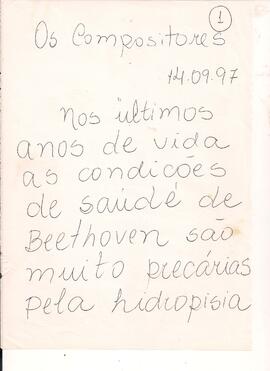 1
Os Compositores
14.09.97
Nos últimos
anos de vida
as condições
de saúde de
Beethoven são
muito precárias
pela hidropisia